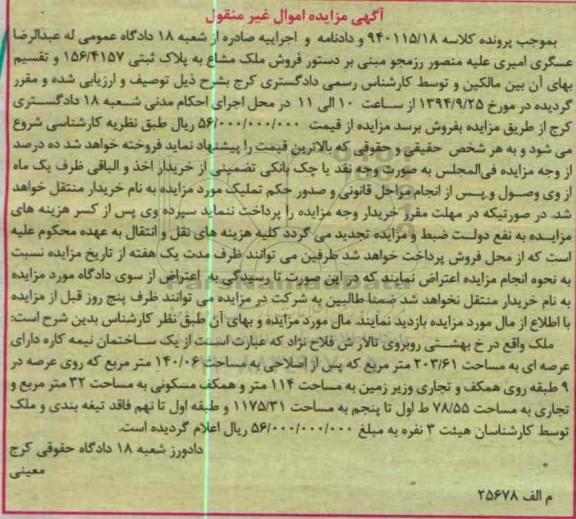 آگهی مزایده اموال غیر منقول
بموجب پرونده کلاسه ۹۴۰۱۱۵/۱۸ و دادنامه و اجراییه صادره از شعبه ۱۸ دادگاه عمومی له عبدالرضا
عسگری امیری علیه منصور رزمجو مبنی بر دستور فروش ملک مشاع به پلاک ثبتی ۱۵۶/۴۱۵۷ و تقسیم
بهای آن بین مالکین و توسط کارشناس رسمی دادگستری کرج بشرح ذیل توصیف و ارزیابی شده و مقرر
گردیده در مورخ ۱۳۹۴/۹/۲۵ از ساعت ۱۰ الی ۱۱ در محل اجرای احکام مدنی شعبه ۱۸ دادگستری
کرج از طریق مزایده بفروش برسد مزایده از قیمت ۵۶/۰۰۰/۰۰۰/۰۰۰ ریال طبق نظریه کارشناسی شروع
می شود و به هر شخص حقیقی و حقوقی که بالاترین قیمت را پیشنهاد نماید فروخته خواهد شد ده درصد
از وجه مزایده فی‌المجلس به صورت وجه نقد یا چک بانکی تضمینی از خریدار اخذ و الباقی ظرف یک ماه
از وی وصول و پس از انجام مراحل قانونی و صدور حکم تملیک مورد مزایده به نام خریدار منتقل خواهد
شد. در صورتیکه در مهلت مقرر خریدار وجه مزایده را پرداخت ننماید سپرده وی پس از کسر هزینه های
مزایده به نفع دولت ضبط و مزایده تجدید می گردد کلیه هزینه های نقل و انتقال به عهده محکوم علیه
است که از محل فروش پرداخت خواهد شد طرفین می توانند ظرف مدت یک هفته از تاریخ مزایده نسبت
به نحوه انجام مزایده اعتراض نمایند که در این صورت تا رسیدگی به اعتراض از سوی دادگاه مورد مزایده
به نام خریدار منتقل نخواهد شد ضمنا طالبین به شرکت در مزایده می توانند ظرف پنج روز قبل از مزایده
با اطلاع از مال مورد مزایده بازدید نمایند. مال مورد مزایده و بهای آن طبق نظر کارشناس بدین شرح است:
ملک واقع در خ بهشتی روبروی تالار ش فلاح نژاد که عبارت است از یک ساختمان نیمه کاره دارای
عرصه ای به مساحت ۲۰۳/۶۱ متر مربع که پس از اصلاحی به مساحت ۱۴۰/۰۶ متر مربع که روی عرصه در
۹ طبقه روی همکف و تجاری وزیر زمین به مساحت ۱۱۴ متر و همکف مسکونی به مساحت ۳۲ متر مربع و
تجاری به مساحت ۷۸/۵۵ ط اول تا پنجم به مساحت ۱۱۷۵/۳۱ و طبقه اول تا نهم فاقد تیغه بندی و ملک
توسط کارشناسان هیئت ۳ نفره به مبلغ ۵۶/۰۰۰/۰۰۰/۰۰۰ ریال اعلام گردیده است.
دادورز شعبه ۱۸ دادگاه حقوقی کرج
معینی
م الف ۲۵۶۷۸